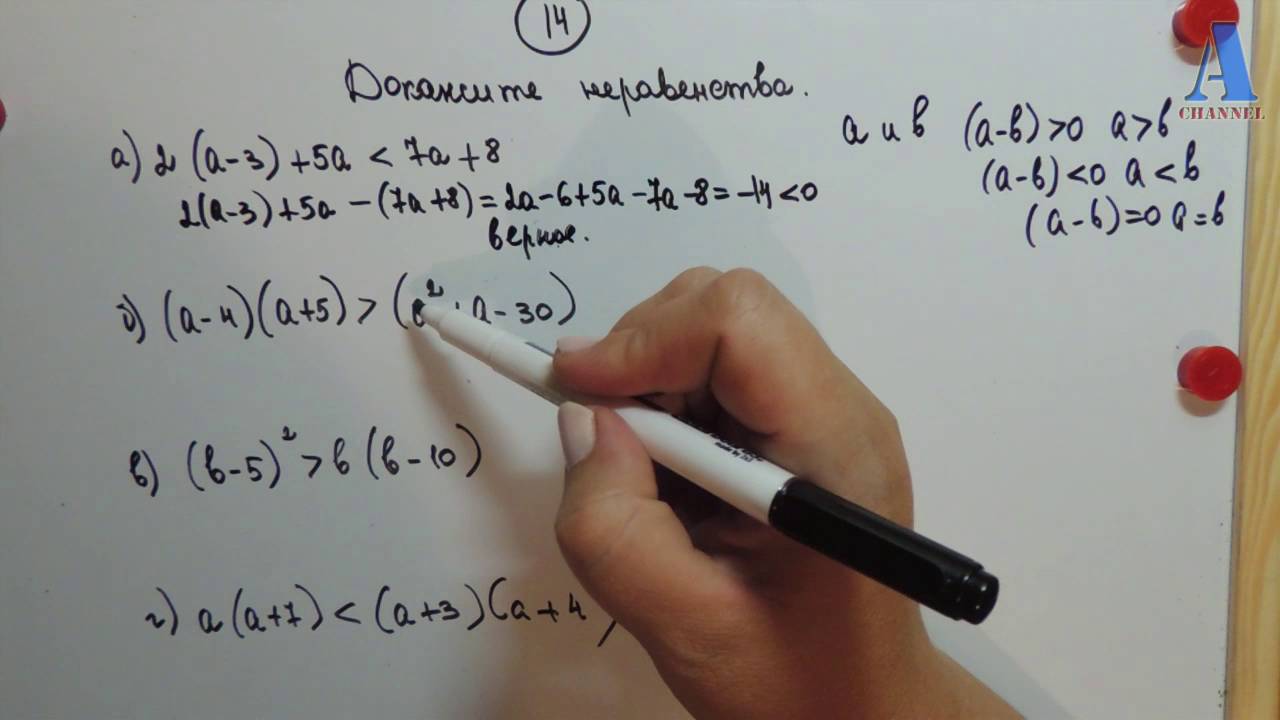 14
Докажите неравенства.
а) 2 (a-3) +5a < 7a +8
2(a-3)+5a - (7a+8) = 2a-6+5a-7a-8 = -14 < 0
верное.
б) (a-4)(a+5) > ( a - 30 )
в) (b-5)² > b (b-10)
г) a (a+7) < (a+3)(a+4)
a и b (a-b) > 0 a > b
(a-b) < 0 a < b
(a-b) = 0 a = b
A
CHANNEL